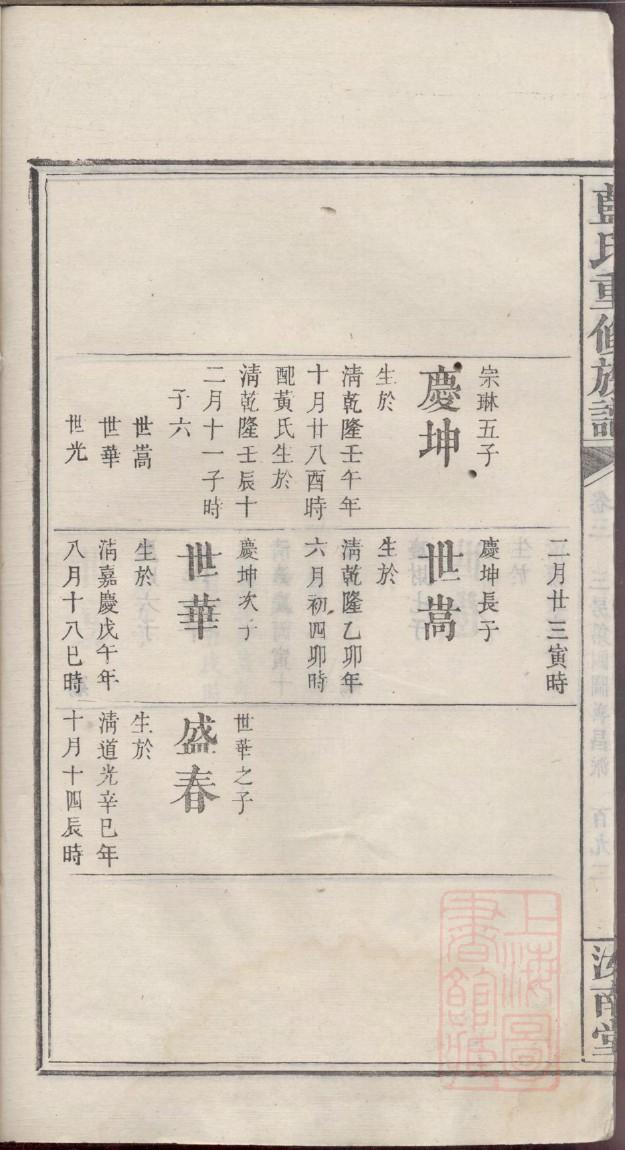 藍氏重修族譜
汝南堂
宗琳五子
慶坤
生於
淸乾隆壬午年
十月廿八酉時
配黃氏生於
淸乾隆壬辰十
二月十一子時
子六
世嵩
世華
世光
二月廿三寅時
慶坤長子
世嵩
生於
淸乾隆乙卯年
六月初四卯時
慶坤次子
世華
生於
淸嘉慶戊午年
八月十八巳時
世華之子
盛春
生於
淸道光辛巳年
十月十四辰時
上海圖
書館藏